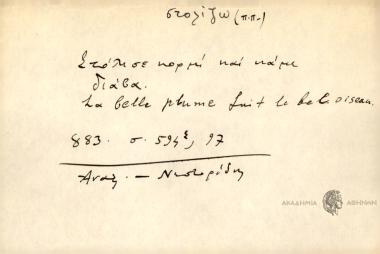 στολίζω (π.π.)
Στόλισε κορμί καί κάμε
διάβα.
La belle plume fait le bel oiseau.
883. σ. 594ξ, 97
Ανατ. — Νεστορίδη
ΑΚΑΔΗΜΙΑ ΑΘΗΝΩΝ